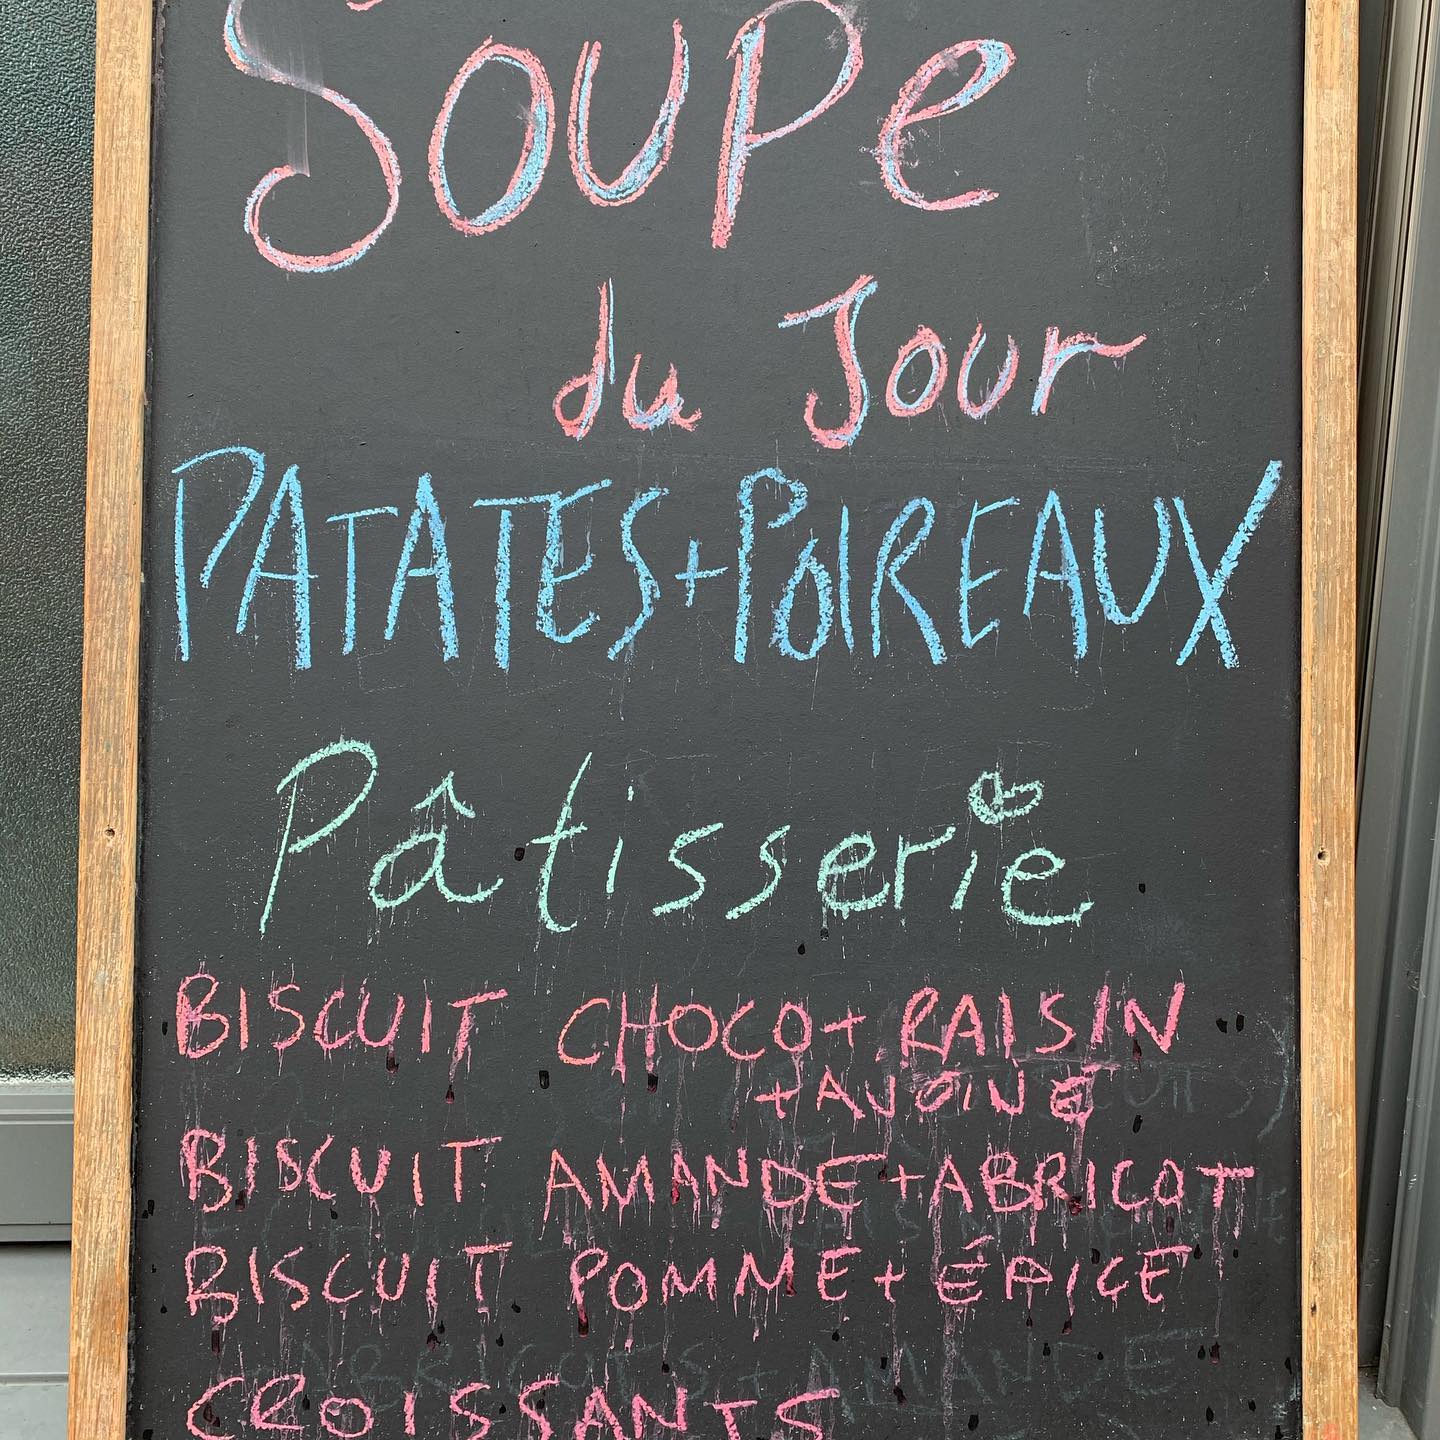 Soupe
du Jour
PATATES + POIREAUX
Pâtisserie
BISCUIT CHOCO + RAISIN
+ AVOINE
BISCUIT AMANDE + ABRICOT
BISCUIT POMME + ÉPICE
ABRICOTS + AMANDE
CROISSANTS